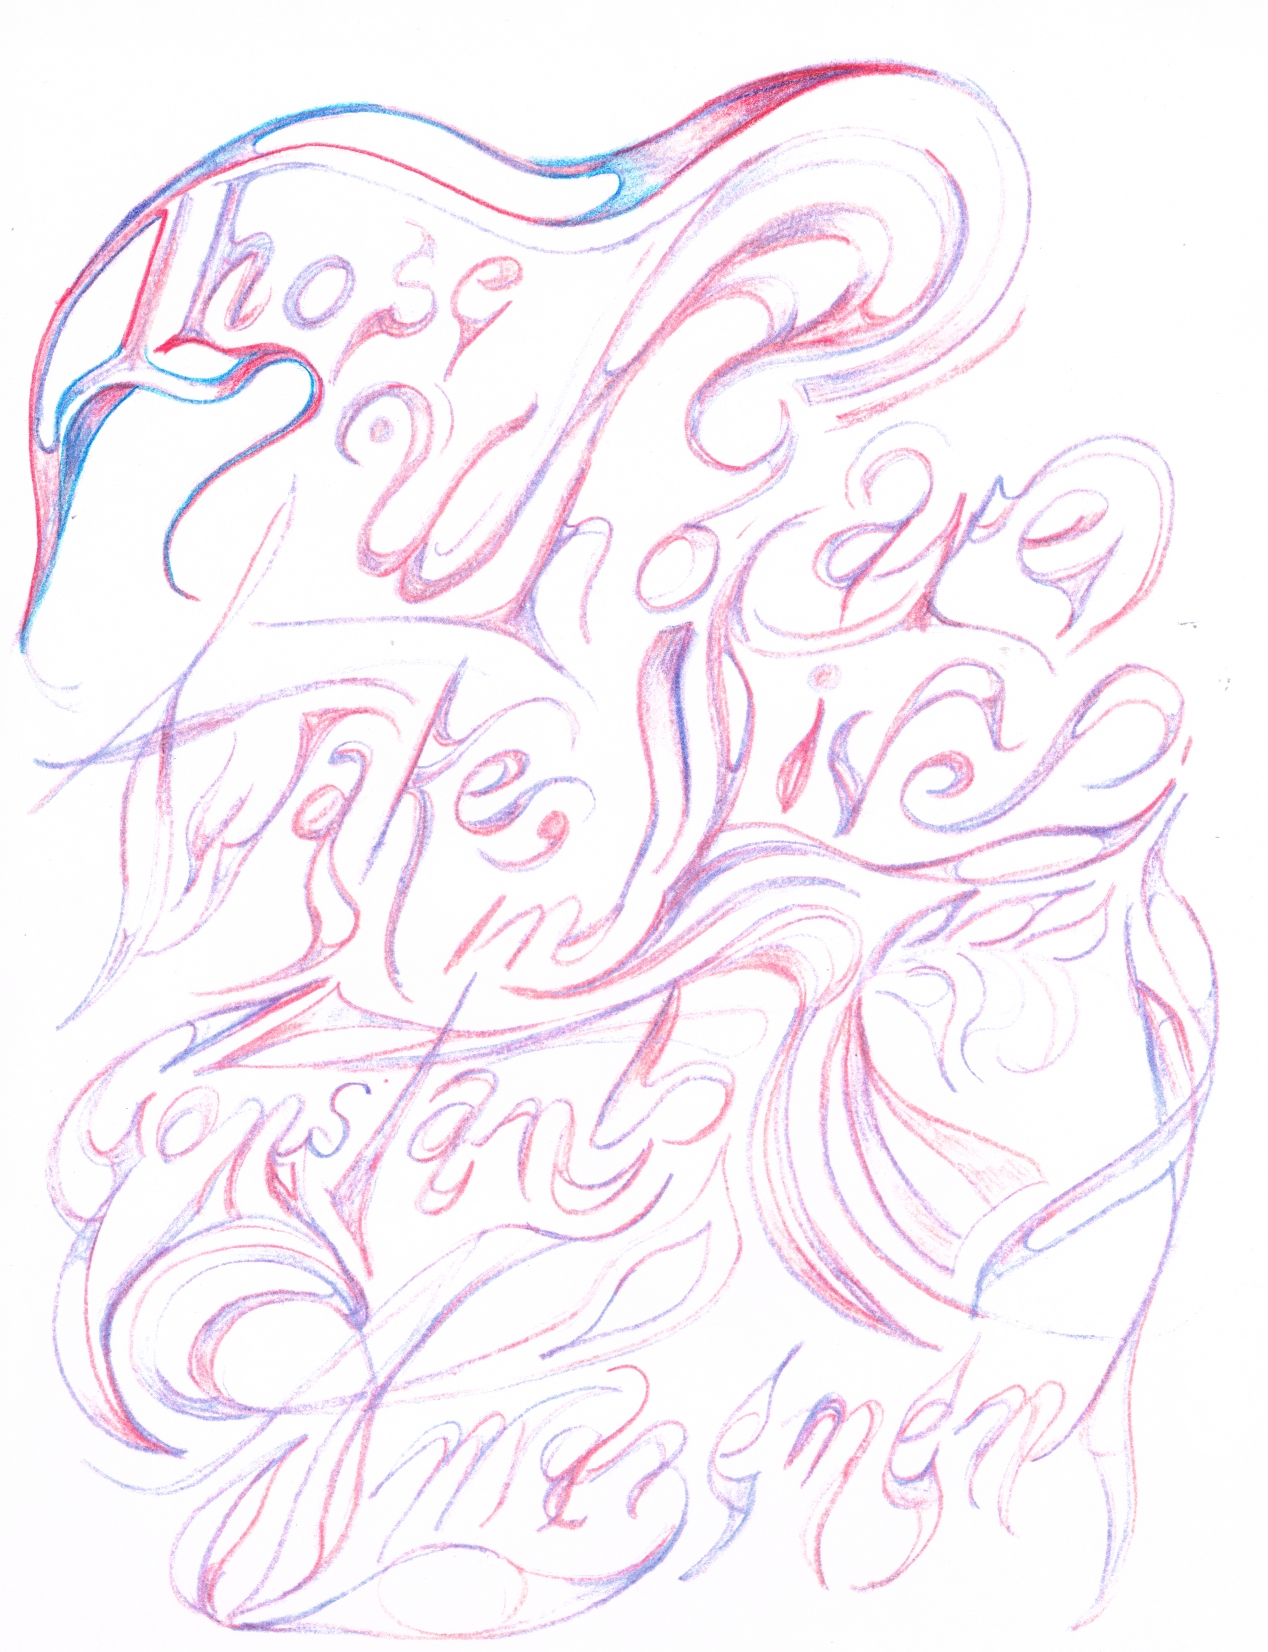 Those
Who are
Awake, Live
in
Constant
Amazement